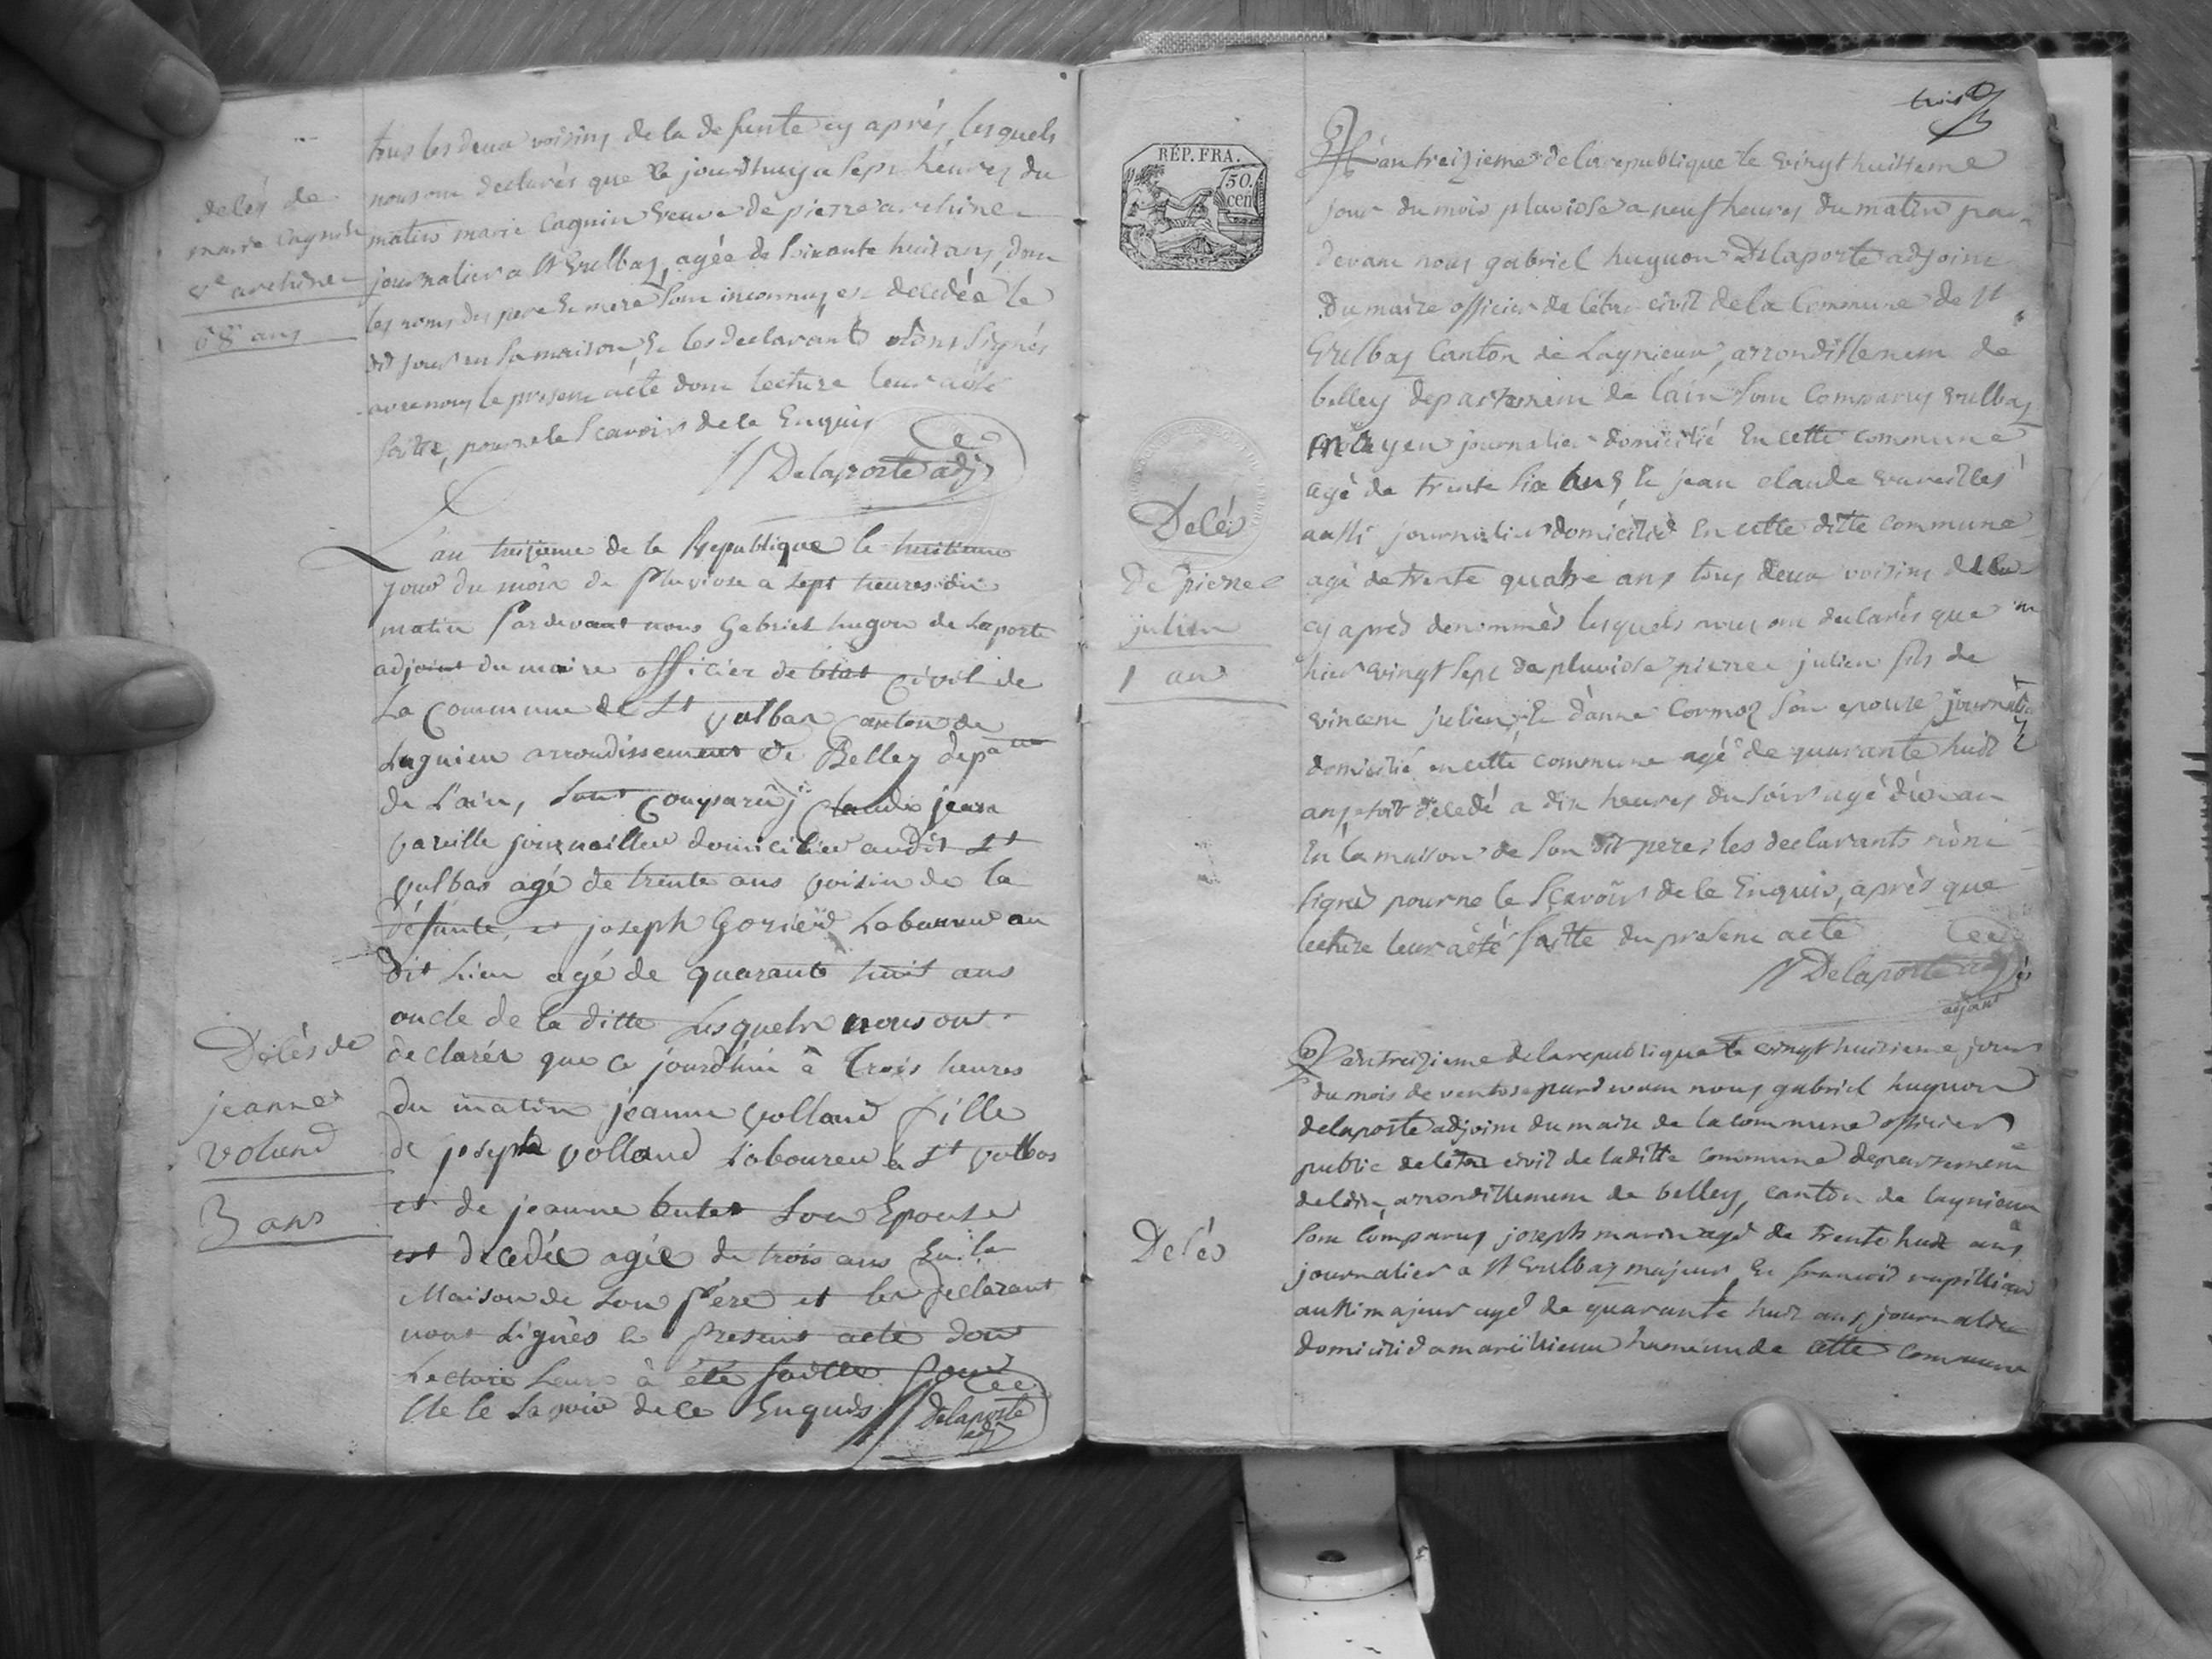 tous les deux voisins de la defunte cy après, lesquels
nous ont declarés que ce jourdhuy a sept héures du
matin marie Cagnin veuve de pierre archine
journalier a St Vulbas, agée de soixante huit ans, dont
les noms des pere & mere sont inconnus, est decedée le
dit jour en sa maison & les declarants n'ont signés
avec nous le present acte dont lecture leur a été
faitte, pour ne le scavoir de ce Enquis
Delaporte adj
Decès de
marie Cagnin
ve archine
68 ans
L'an treizieme de la Republique le huitieme
jour du mois de Pluviose a sept heures du
matin Pardevant nous Gabriel hugon de Laporte
adjoint du maire officier de l'état Civil de
La Commune de St Vulbas Canton de
Lagnieu arrondissement de Belley depa
de L'ain, sont Comparus Claude jean
Vareille journaillier domicilier audit St
Vulbas agé de trente ans Voisin de la
défunte, et joseph Laboureur au
dit Lieu agé de quarante huit ans
oncle de la ditte Lesquels nous ont
declarér que ce jourdhui à trois heures
du matin jeanne Volland fille
de joseph Volland Laboureur à St Vulbas
et de jeanne son Epouse
est decedée agée de trois ans En la
Maison de son Père et les Declarant
nont signés le present acte dont
Lecture Leurs à été faitte Pour
Ne le savoir de ce Enquis
Delaporte
adj
Décès de
jeanne
voland
3 ans
trois
RÉP. FRA.
50.
cen
L'an treizieme de la republique le vingt huitieme
jour du mois pluviose a neuf heures du matin par
devant nous gabriel huguon Delaporte adjoint
Du maire officier de l'état civil de la Commune de St
Vulbas Canton de Lagnieux, arrondissement de
belley departement de l'ain sont Comparus vulbas
journalier domicilié En cette commune
agé de trente six ans, & jean claude vareilles
aussi journalier domicilié En cette ditte commune
agé de trente quatre ans tous deux voisins
cy après denommés lesquels nous ont declarés que
hier vingt sept de pluviose pierre julien fils de
vincent julien, & d'anne Cormoz son epouse journalier
domicilié en cette commune agé de quarante huit
ans, etoit decedé a dix heures du soir agé d'un an
En la maison de son dit pere, les declarants n'ont
signés pour ne le scavoir de ce Enquis, après que
lecture leur a été faitte du present acte
Delaporte
adjoint
Decès
De pierre
julien
1 an
L'an treizieme de la republique le vingt huitieme jour
du mois de ventose pardevant nous gabriel huguon
delaporte adjoint du maire de la commune officier
public de l'état civil de laditte commune departement
de l'ain, arrondissement de belley, canton de lagnieux
sont comparus joseph marin agé de trente huit ans
journalier a St Vulbas majeur & francois
aussi majeur agé de quarante huit ans, journalier
domicilié a hameau de cette commune
Decès